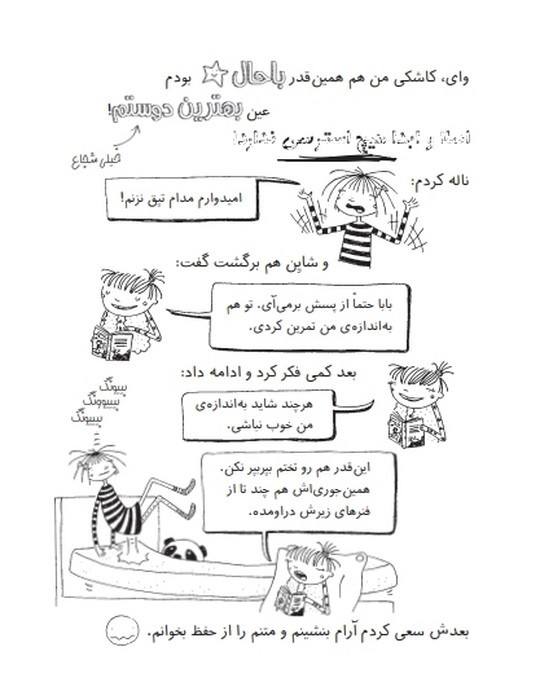 وای، کاشکی من هم همین‌قدر باحال بودم
عین بهترین دوستم!
خیلی شجاع
اصلا و ابدا هیچ استرسی ندارد!
ناله کردم:
امیدوارم مدام تپق نزنم!
و شاین هم برگشت گفت:
بابا حتماً از پسش برمی‌آی. تو هم
به‌اندازه‌ی من تمرین کردی.
بعد کمی فکر کرد و ادامه داد:
هرچند شاید به‌اندازه‌ی
من خوب نباشی.
بیبونگ
بیبوونگ
بیبیونگ
این‌قدر هم رو تختم بپربپر نکن.
همین‌جوری‌اش هم چند تا از
فنرهای زیرش دراومده.
بعدش سعی کردم آرام بنشینم و متنم را از حفظ بخوانم.